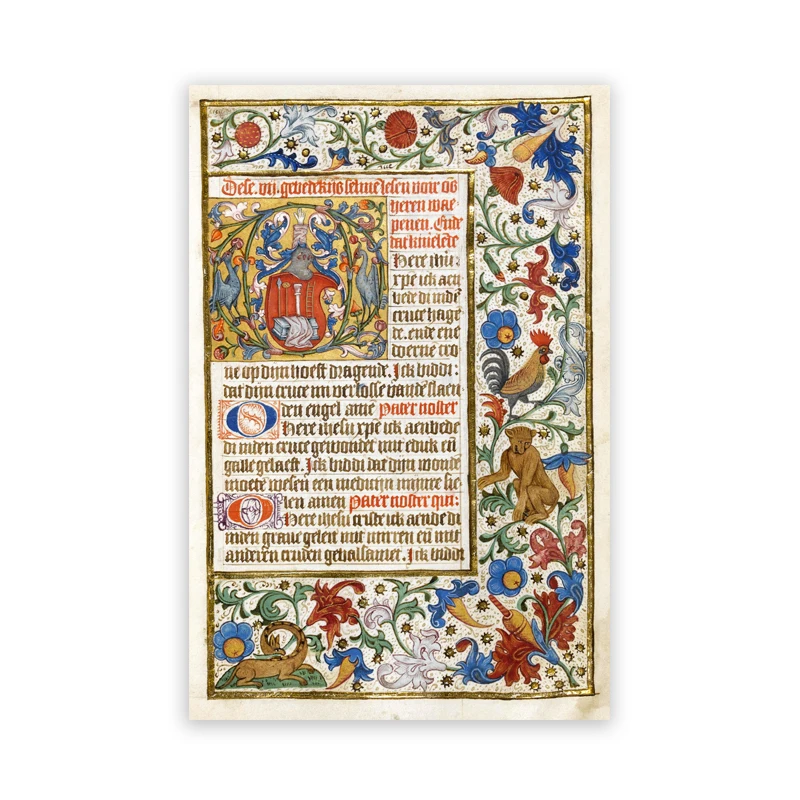 Dese. vij. gebedekijs selmē lesen voir ōs
heren wae
penen. Ende
dat knielēde
Here ihū.
xpe ick aen
bede di indē
cruce hāgē
de. ende ene
doerne cro
ne op dijn hoeft dragende. Ick biddi.
dat dijn cruce mi verlosse vandē slaen
den engel amē Pater noster
Here ihesu xpē ick aenbede
di inden cruce gewondet mit edick eñ
galle gelaeft. Ick biddi dat dijn wonde
moete wesen een medicijn mijnre sie
len amen Pater noster qui:
Here ihesu criste ick aenbede di
inden graue geleit mit mirren eñ mit
anderen cruden gebalsamet. Ick biddi